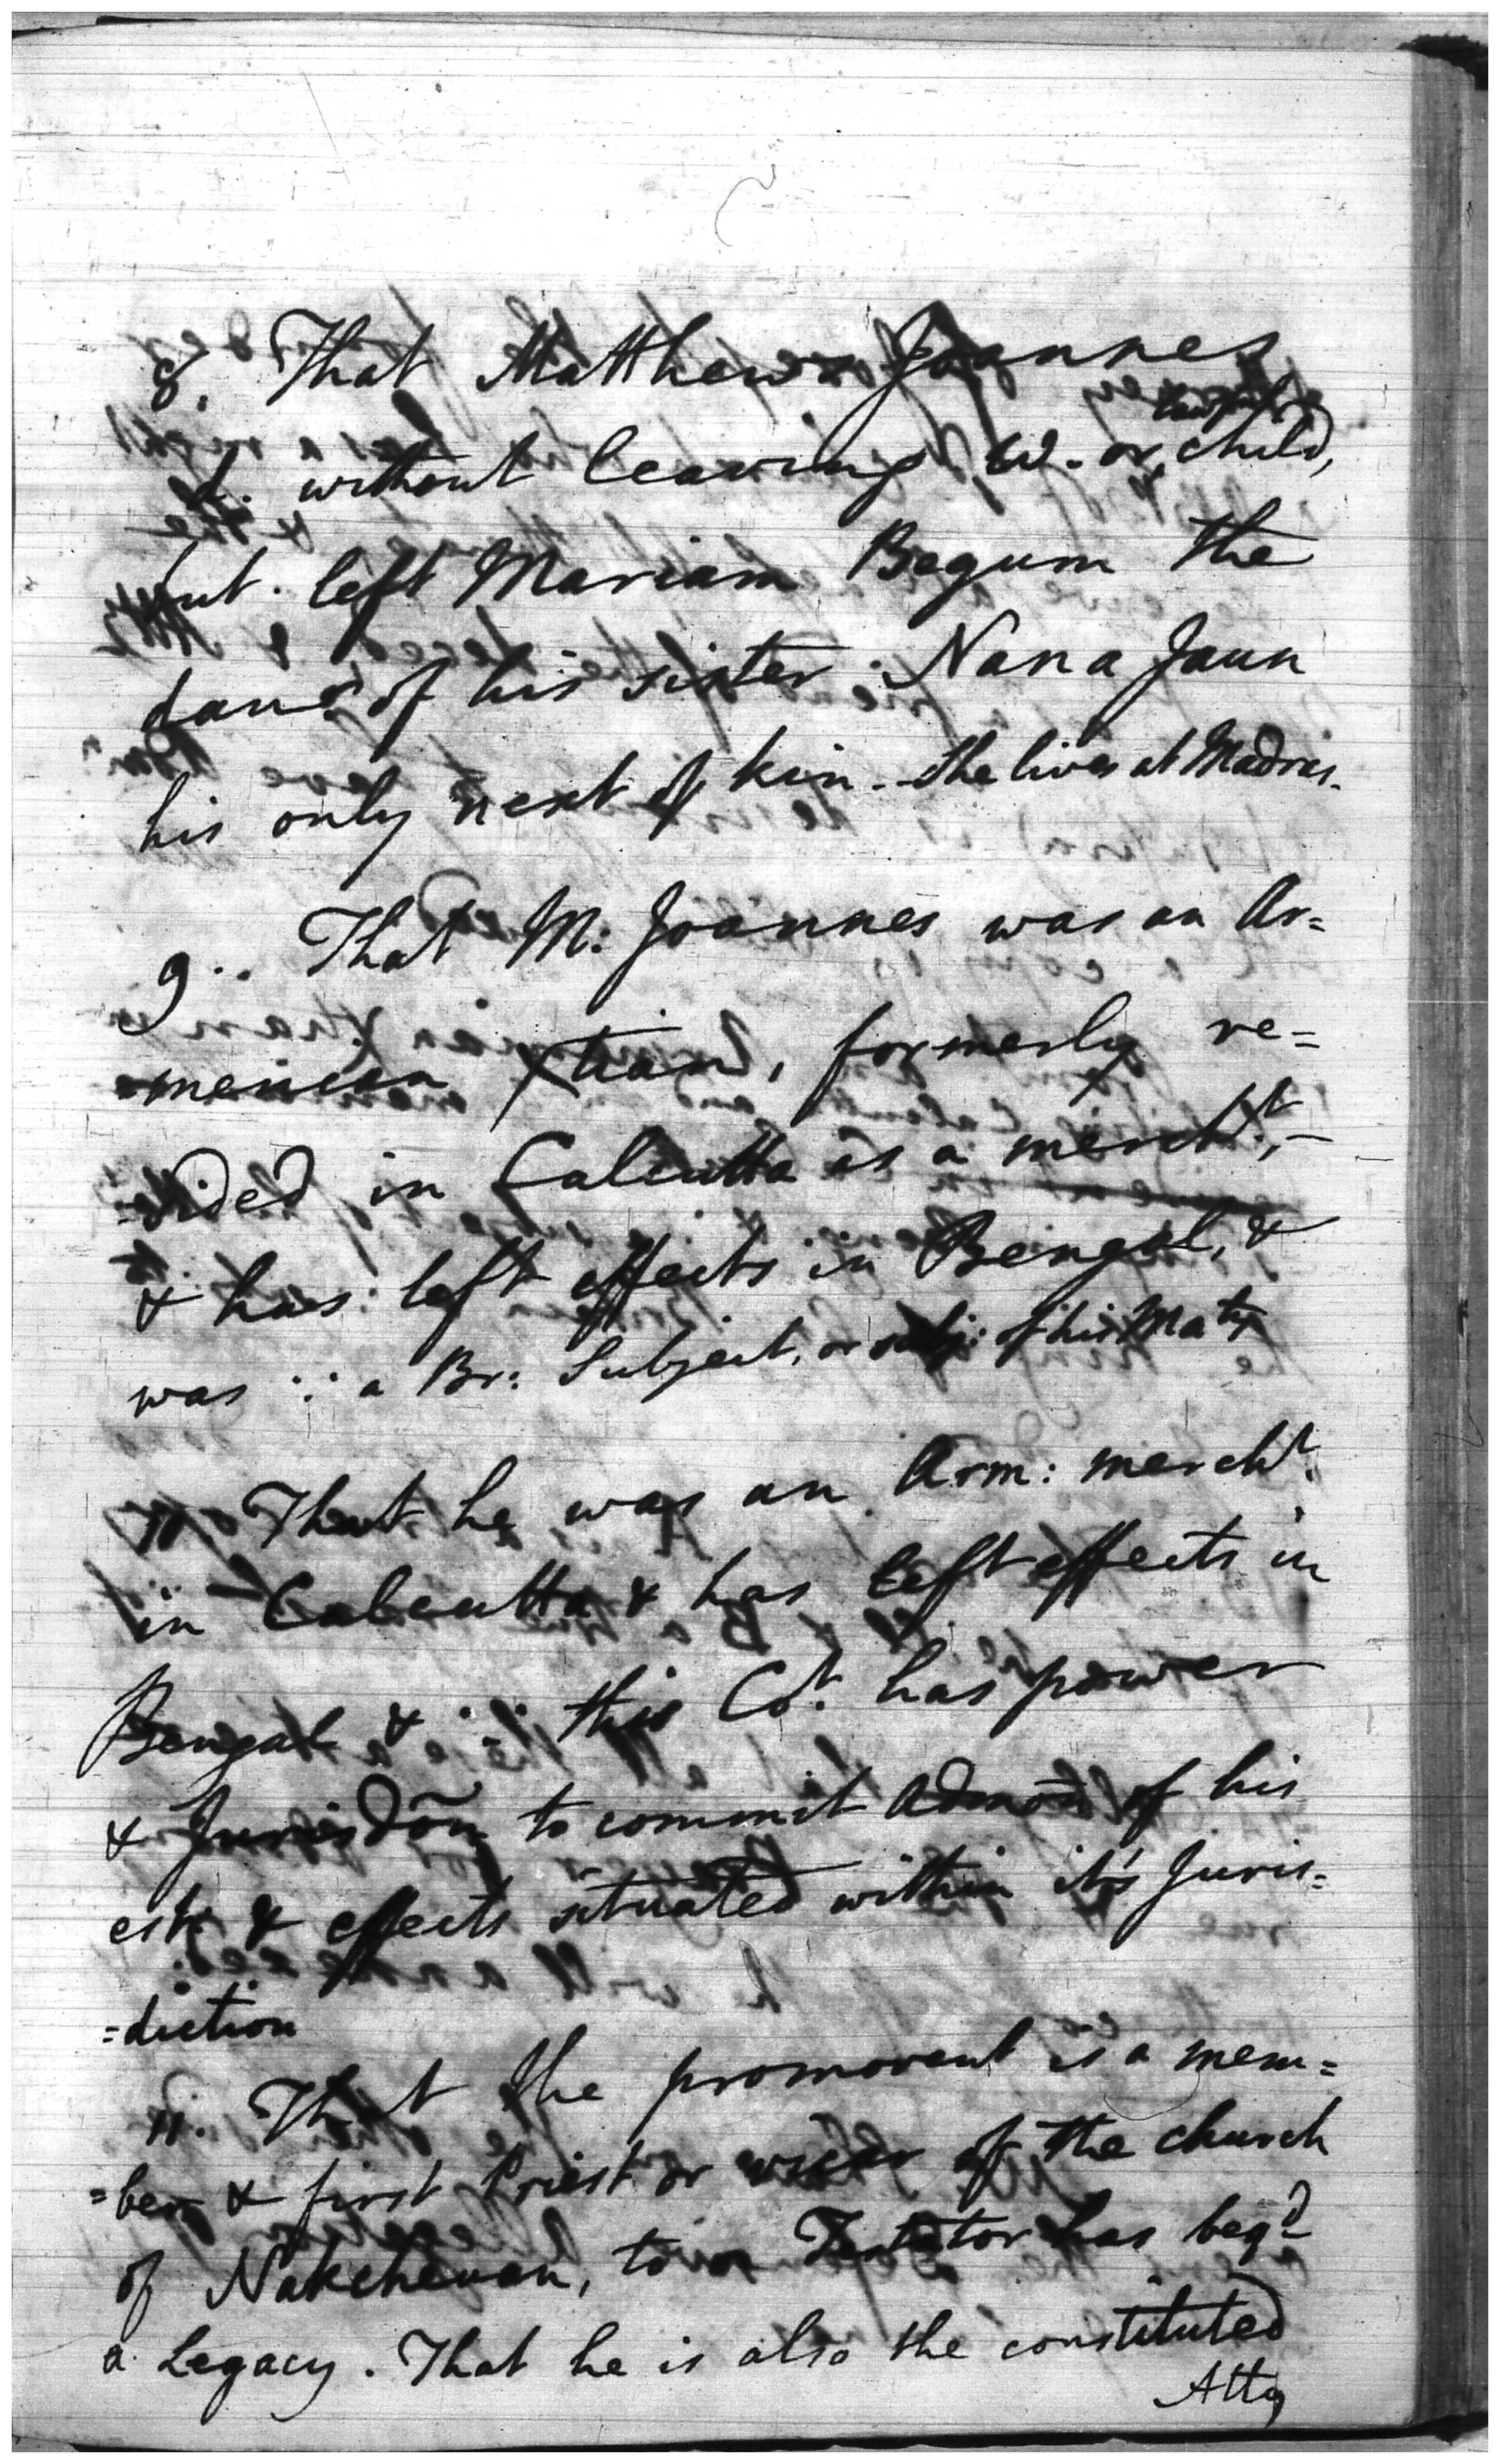 8. That Matthew Joannes
d. without leaving W. or lawful child,
but left Mariam Begum the
daur. of his sister Nana Jaun
his only next of kin - She lives at Madras.
9.. That M: Joannes was an Ar=
=menian Xtian, formerly re=
=sided in Calcutta as a mercht., -
& has left effects in Bengal, &
was ∴ a Br: Subject, or subj: of his Maty
10 That he was an Arm: mercht.
in Calcutta & has left effects in
Bengal & ∴ this Cot. has power
& Jurisdõn to commit Admõn of his
este & effects situated within it's Juris=
=diction
11. That the promovent is a mem=
=ber & first Priest or vicar of the church
of Nakchevan, to Testator has beqd
a Legacy. That he is also the constituted
Atty